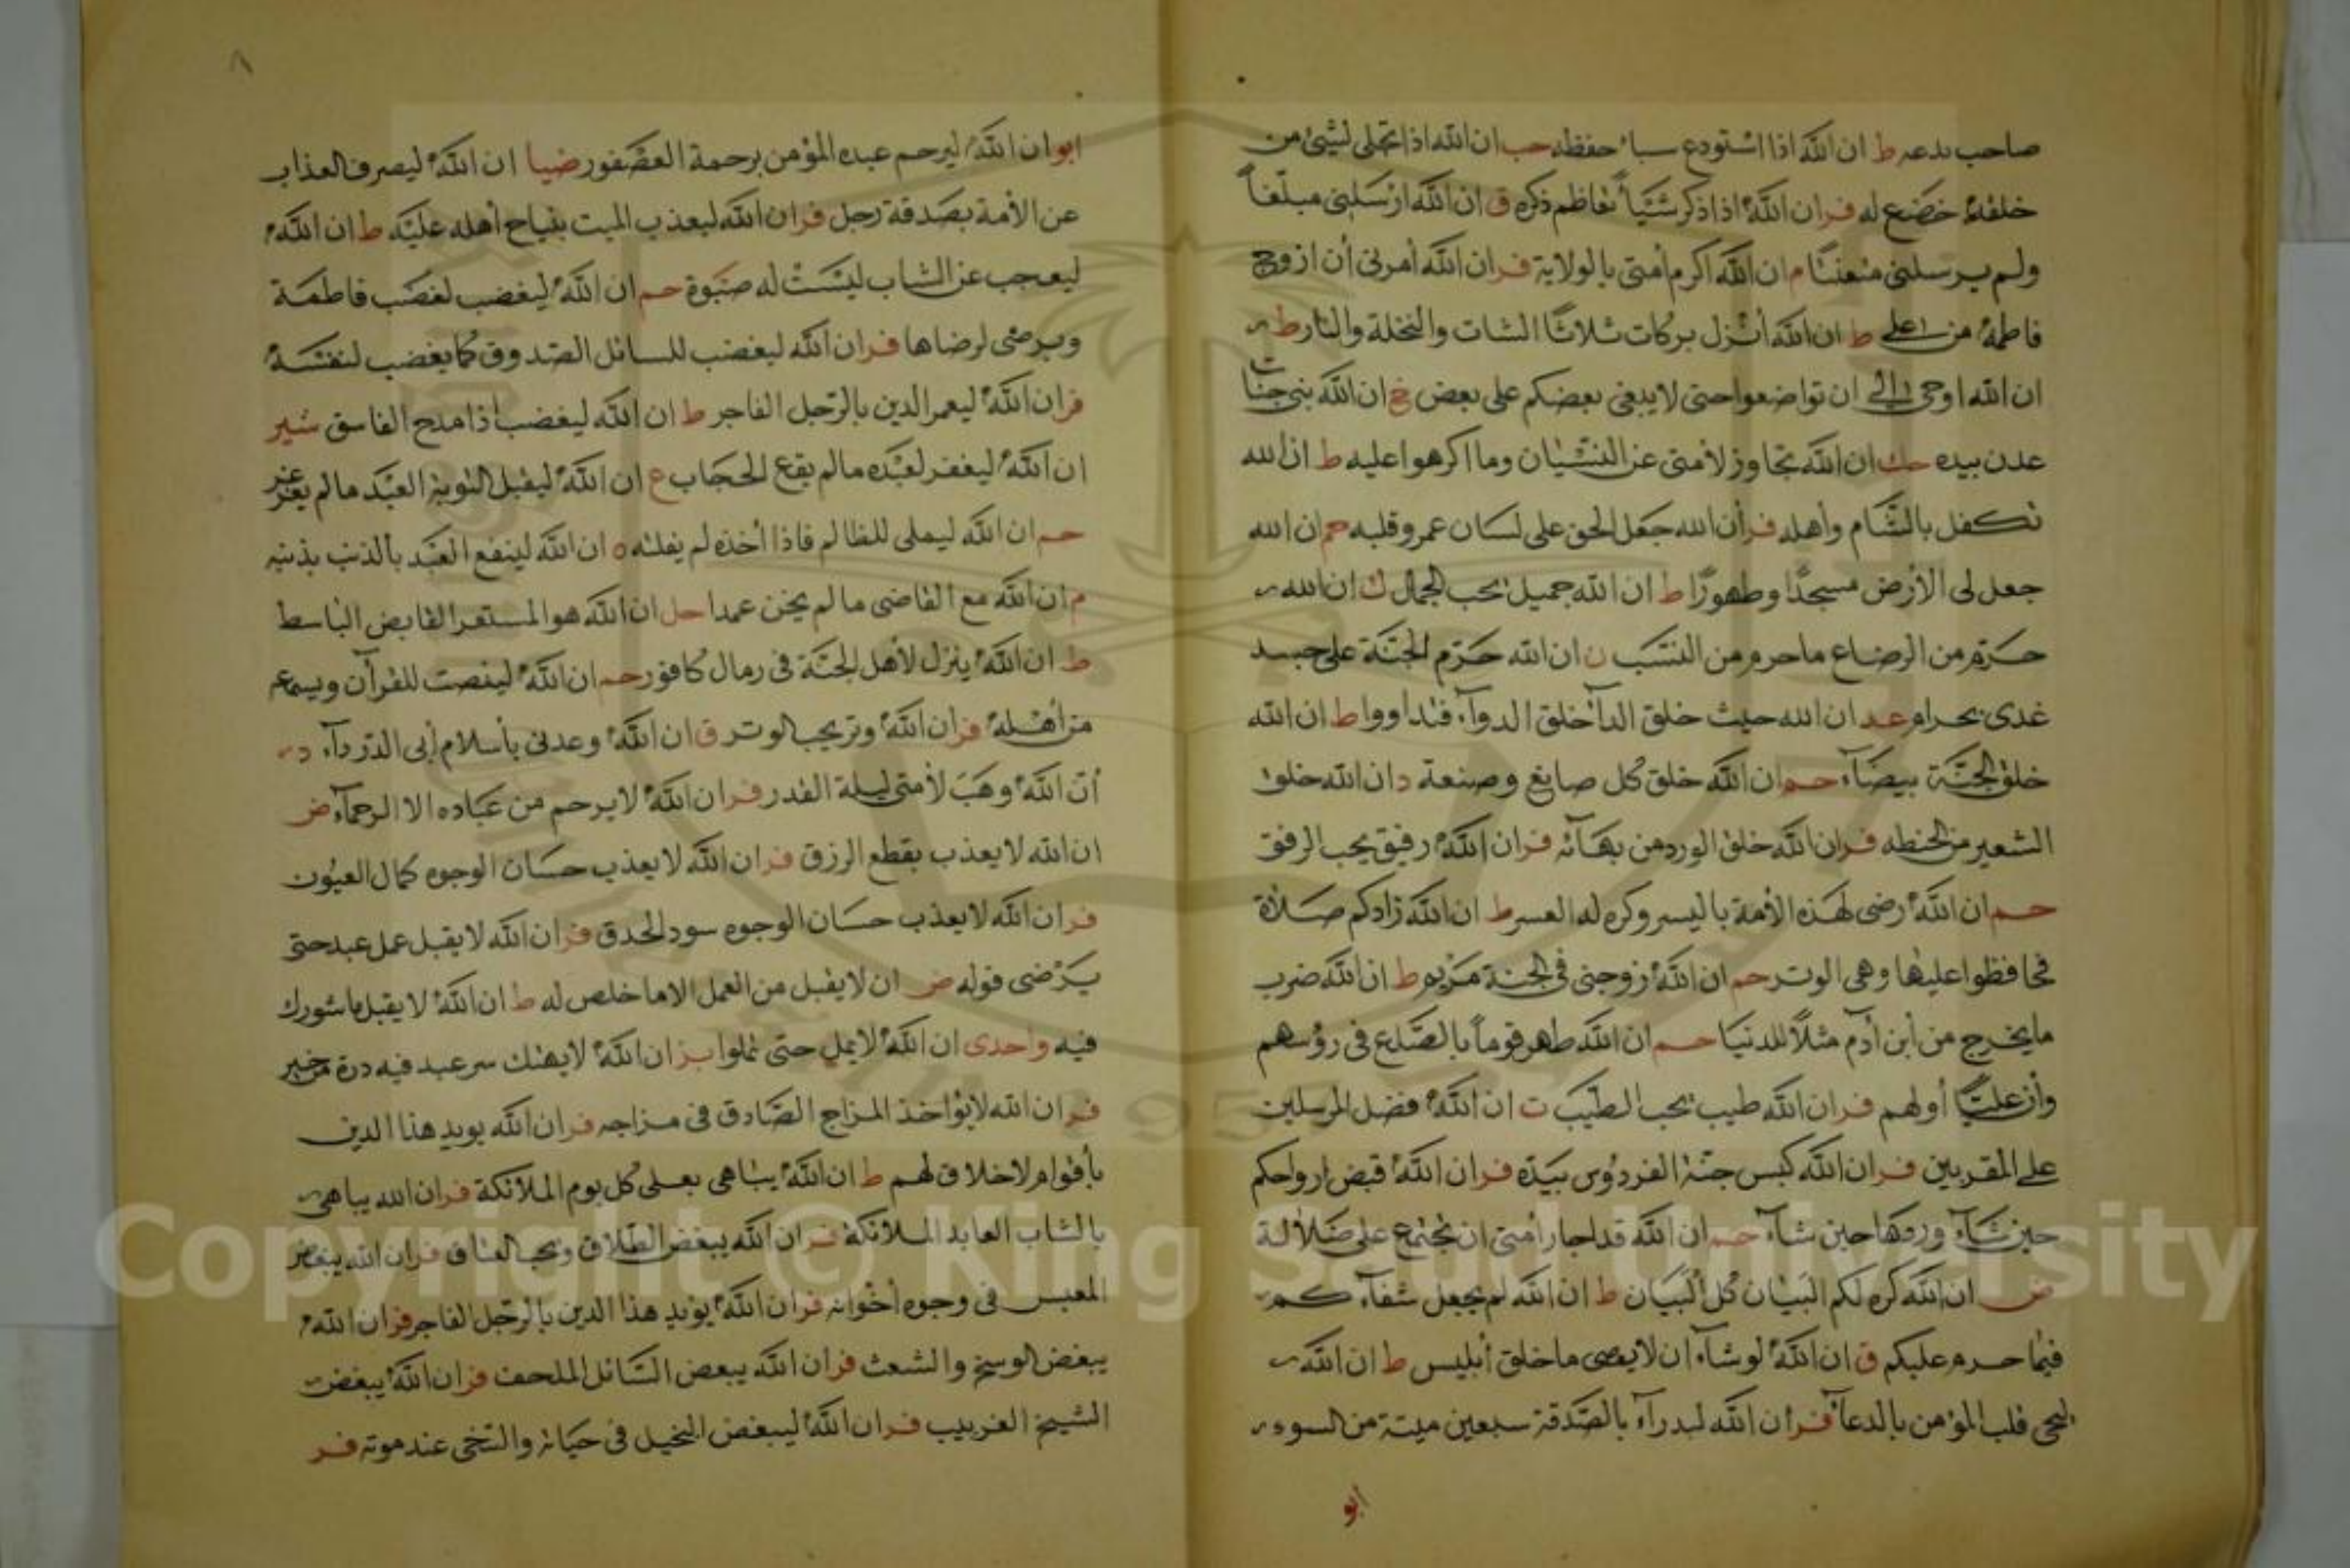 صاحب بدعه ط ان الله اذا استودع سبأ حفظه حب ان الله اذا تجلى لشيئ من
خلقه خضع له فر ان الله اذا ذكر شيأ تعاظم ذكره ق ان الله ارسلنى مبلغاً
ولم يرسلنى متعنتا م ان الله اكرم أمتى بالولاية فر ان الله أمرنى أن ازوج
فاطمة من اعلى ط ان الله أنزل بركات ثلاثا الشات والنخلة والنار ط
ان الله اوحى الى ان تواضعوا حتى لا يبغى بعضكم على بعض خ ان الله بنى جنات
عدن بيده حك ان الله تجاوز لأمتى عن النسيان وما اكرهوا عليه ط ان الله
تكفل بالشام وأهله فر أن الله جعل الحق على لسان عمر وقلبه حم ان الله
جعل لى الأرض مسجدًا وطهورًا ط ان الله جميل يحب الجمال ك ان الله
حرم من الرضاع ما حرم من النسب ن ان الله حرم الجنة على جسد
غدى بحرام عد ان الله حيث خلق الدأ خلق الدوآء فتداووا ط ان الله
خلق الجنة بيضآء حم ان الله خلق كل صايغ وصنعة د ان الله خلق
الشعير من الحنطه فر ان الله خلق الورد من بهآئه فر ان الله رفيق يحب الرفق
حم ان الله رضى لهذه الأمة باليسر وكره له العسر ط ان الله زادكم صلاة
فحافظوا عليها وهى الوتر حم ان الله زوجنى فى الجنة مريم ط ان الله ضرب
ما يخرج من أبن أدم مثلاً للدنيا حم ان الله طهر قوماً بالصلع فى رؤسهم
وأن علياً أولهم فر ان الله طيب يحب الطيب ت ان الله فضل المرسلين
على المقربين فر ان الله كبس جنة الفردوس بيده فر ان الله قبض ارواحكم
حين شآء وردها حين شآء حم ان الله قد اجار أمتى ان تجتمع على ضلالة
ض ان الله كره لكم البيان كل البيان ط ان الله لم يجعل شفآء كم
فيما حرم عليكم ق ان الله لو شآء ان لا يعصى ما خلق أبليس ط ان الله
ليحى قلب المؤمن بالدعآ فر ان الله ليدرآء بالصدقة سبعين ميتة من السوء
ابو
٨
ابو ان الله ليرحم عبده المؤمن برحمة العصفور ضيا ان الله ليصرف العذاب
عن الأمة بصدقة رجل فر ان الله ليعذب الميت بنياح أهله عليه ط ان الله
ليعجب عن الشاب ليست له صبوة حم ان الله ليغضب لغضب فاطمة
ويرضى لرضاها فر ان الله ليغضب للسائل الصدوق كما يغضب لنفسه
فر ان الله ليعمر الدين بالرجل الفاجر ط ان الله ليغضب اذا مدح الفاسق شير
ان الله ليغفر لعبده ما لم يقع الحجاب ع ان الله ليقبل التوبة العبد ما لم يغرغر
حم ان الله ليملى للظالم فاذا أخذه لم يفلته ٥ ان الله لينفع العبد بالذنب يذنبه
م ان الله مع القاضى ما لم يخن عمدا حل ان الله هو المستعر القابض الباسط
ط ان الله ينزل لأهل الجنة فى رمال كافور حم ان الله لينصت للقرآن ويسمع
من أهله فر ان الله وتر يحب الوتر ق ان الله وعدنى بأسلام أبى الدردآء د
أن الله وهب لأمتى ليلة القدر فر ان الله لا يرحم من عباده الا الرحمآء ض
ان الله لا يعذب بقطع الرزق فر ان الله لا يعذب حسان الوجوه كمال العيون
فر ان الله لا يعذب حسان الوجوه سود الحدق فر ان الله لا يقبل عمل عبد حتى
يرضى قوله ض ان لا يقبل من العمل الا ما خلص له ط ان الله لا يقبل ما شورك
فيه واحدى ان الله لا يمل حتى تملوا بز ان الله لا يهتك سر عبد فيه درة من خير
فر ان الله لا يؤاخذ المزاج الصادق فى مزاجه فر ان الله يويد هذا الدين
بأقوام لا خلاق لهم ط ان الله يباهى بعلى كل يوم الملائكة فر ان الله يباهى
بالشاب العابد الملائكة فر ان الله يبغض الطلاق ويحب العتاق فر ان الله يبغض
المعبس فى وجوه أخوانه فر ان الله يؤيد هذا الدين بالرجل الفاجر فر ان الله
يبغض الوسخ والشعث فر ان الله يبعض السائل الملحف فر ان الله يبغض
الشيخ الغربيب فر ان الله ليبغض البخيل فى حياته والسخى عند موته فر
Copyright © King Saud University
1957